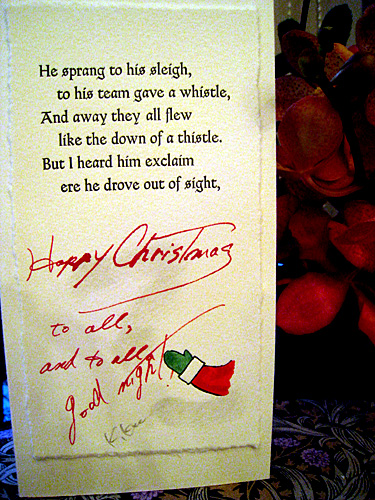 He sprang to his sleigh,
to his team gave a whistle,
And away they all flew
like the down of a thistle.
But I heard him exclaim
ere he drove out of sight,
Happy Christmas
to all,
and to all a
good night!